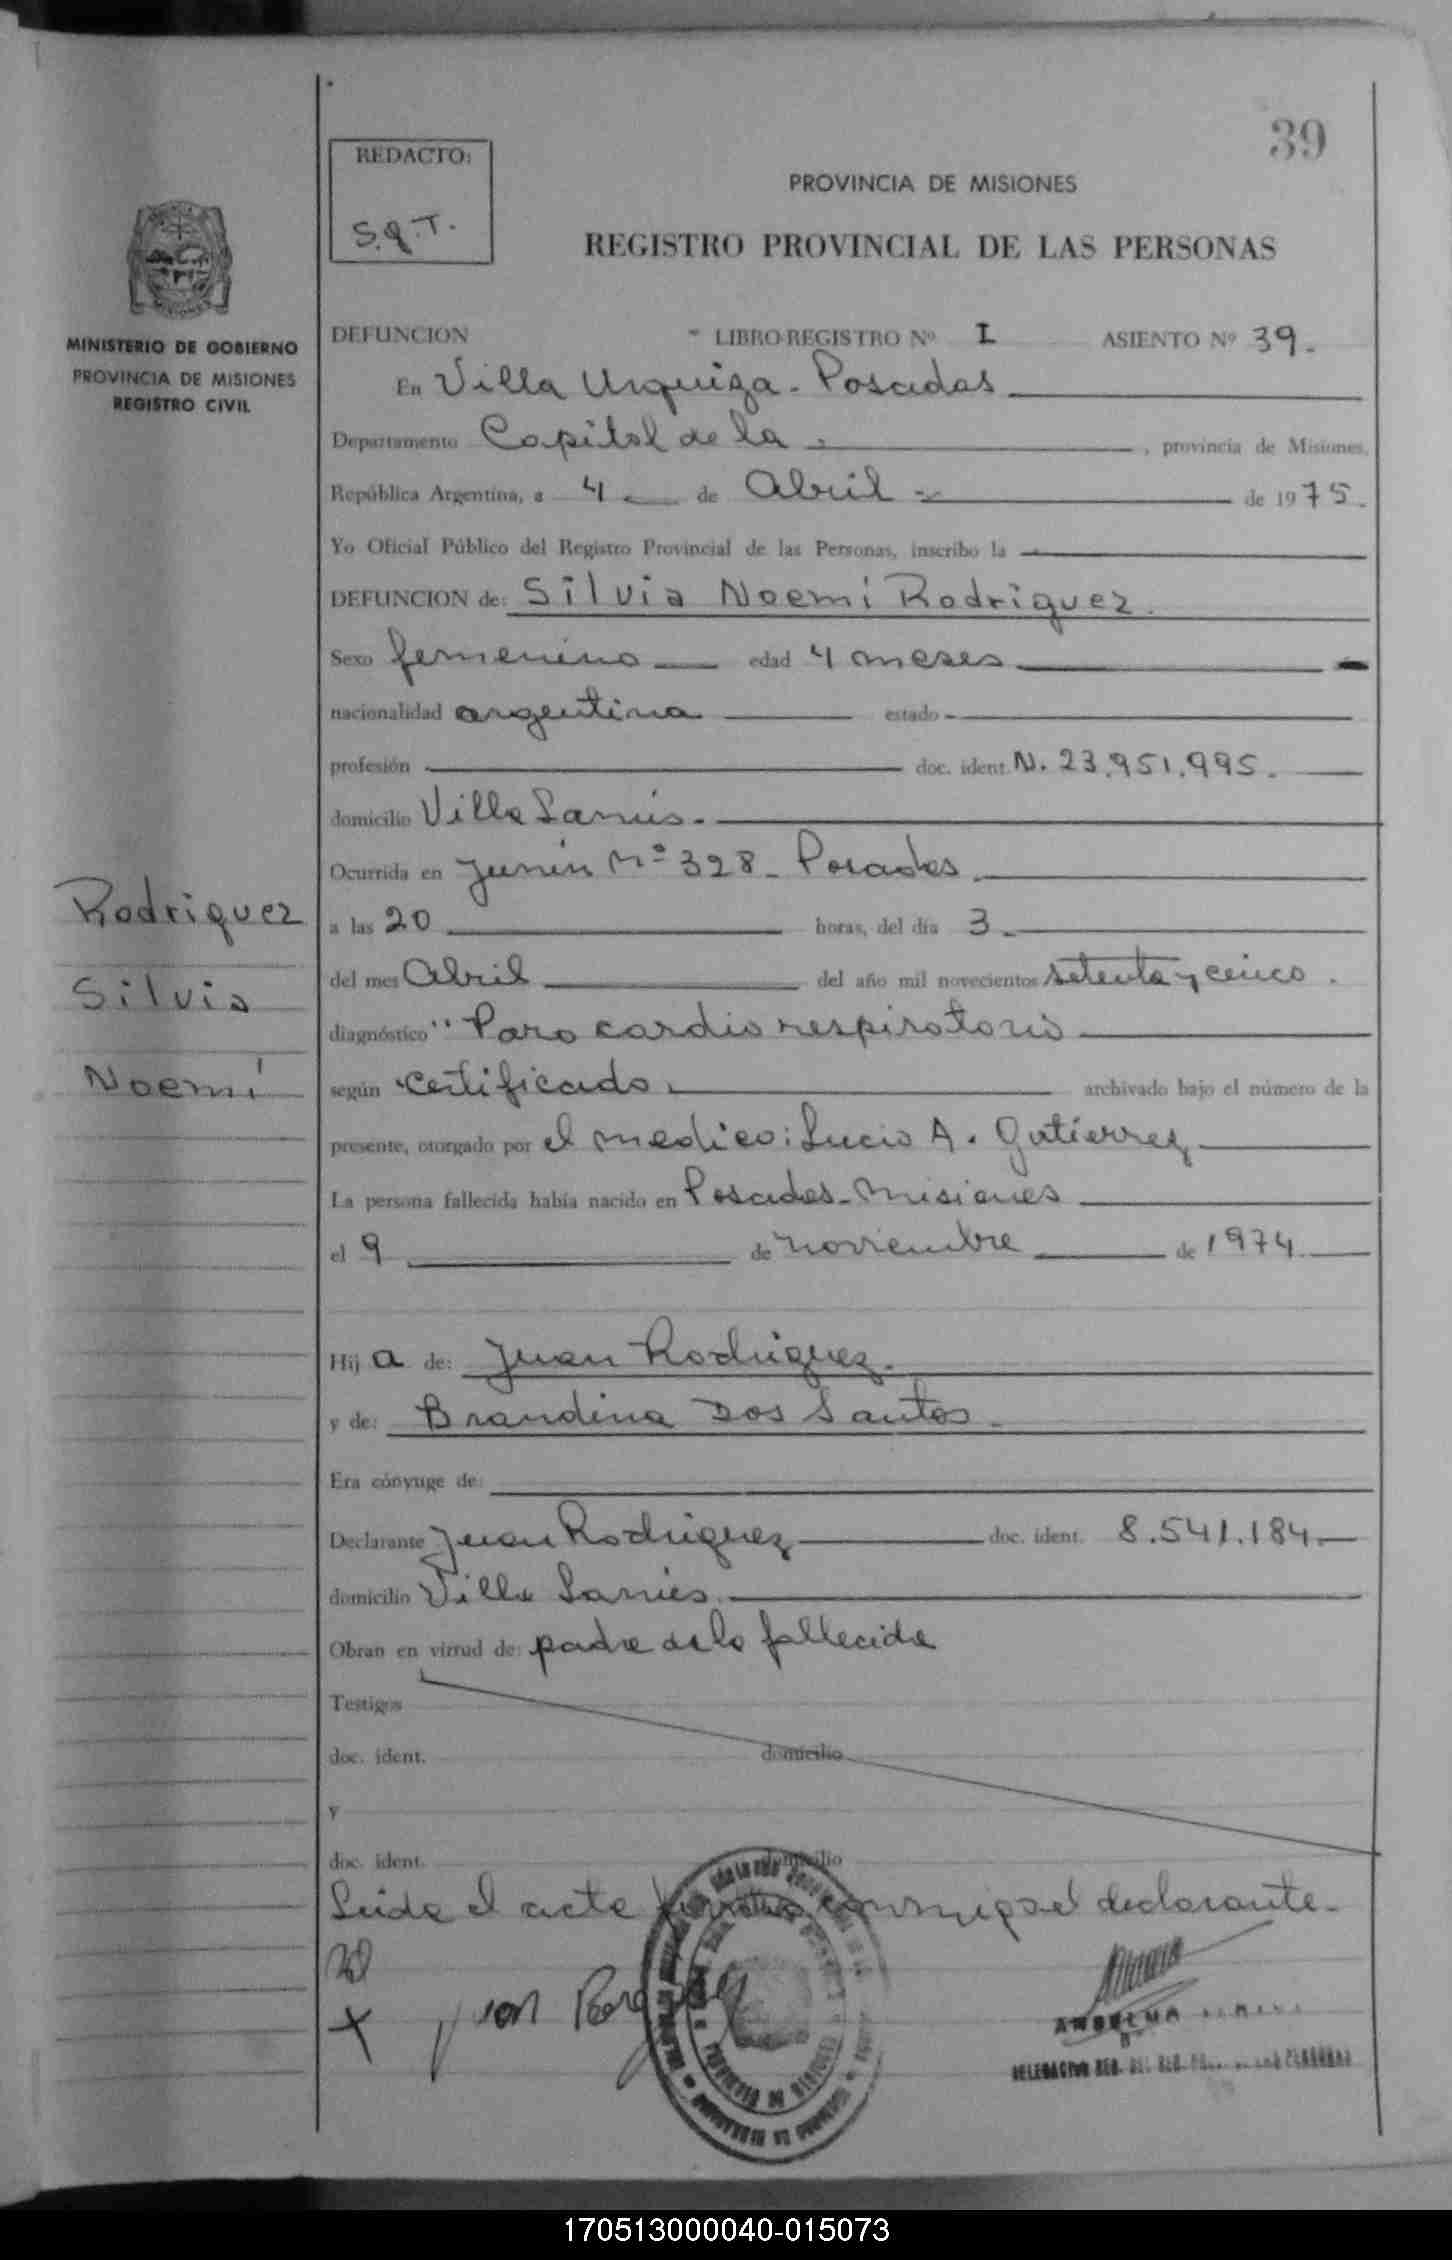 39
REDACTO:
S.Q.T.
PROVINCIA DE MISIONES
REGISTRO PROVINCIAL DE LAS PERSONAS
MINISTERIO DE GOBIERNO
PROVINCIA DE MISIONES
REGISTRO CIVIL
DEFUNCION LIBRO-REGISTRO Nº I ASIENTO Nº 39.
En Villa Urquiza - Posadas
Departamento Capital de la , provincia de Misiones,
República Argentina, a 4 de Abril de 1975.
Yo Oficial Público del Registro Provincial de las Personas, inscribo la
DEFUNCION de: Silvia Noemí Rodriguez.
Sexo femenino edad 4 meses
nacionalidad argentina estado
profesión doc. ident. N. 23.951.995.
domicilio Villa Lanús.
Ocurrida en Junín Nº 328 - Posadas
a las 20 horas, del día 3.
del mes Abril del año mil novecientos setenta y cinco.
diagnóstico "Paro cardio respiratorio
según certificado. archivado bajo el número de la
presente, otorgado por el medico: Lucio A. Gutierrez
La persona fallecida había nacido en Posadas - Misiones
el 9 de noviembre de 1974.
Hij a de: Juan Rodriguez.
y de: Brandina Dos Santos.
Era cónyuge de:
Declarante Juan Rodriguez doc. ident. 8.541.184.
domicilio Villa Lanús.
Obran en virtud de: padre de la fallecida
Testigos
doc. ident. domicilio
y
doc. ident. domicilio
Leída el acta firma conmigo el declarante.
Juan
ANSELMA
DELEGACION
PROVINCIA DE MISIONES
Rodriguez
Silvia
Noemí
170513000040-015073